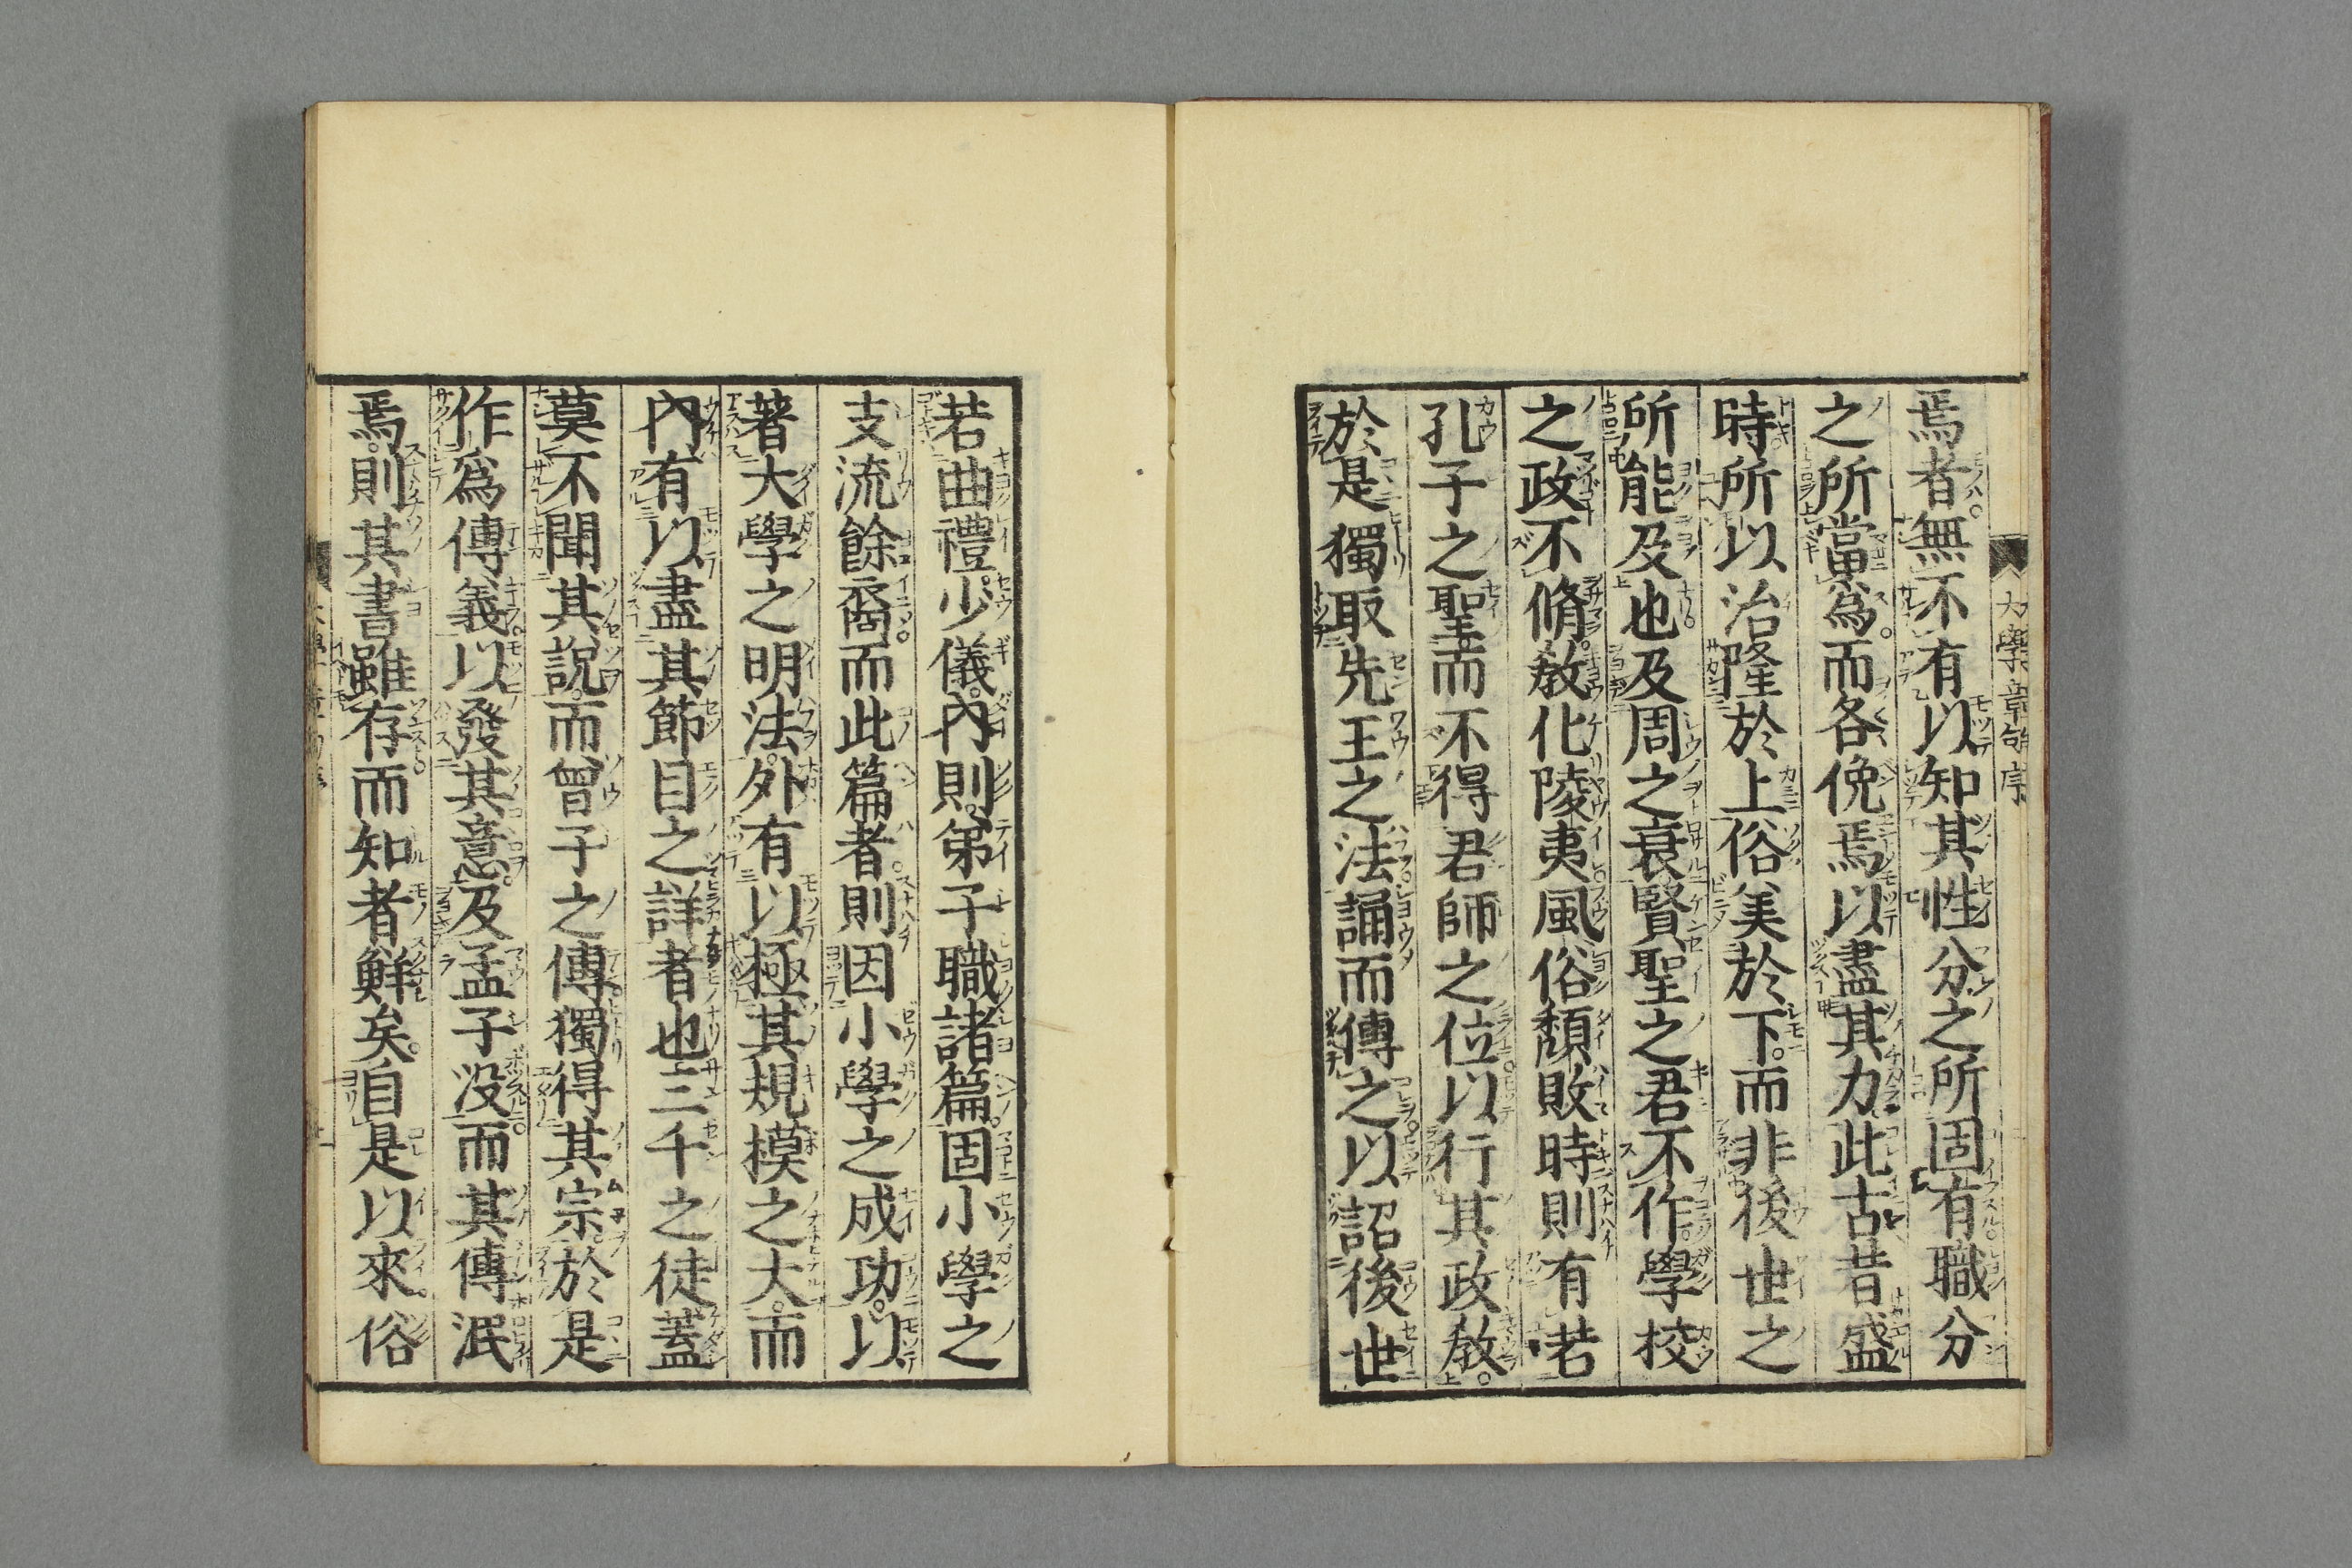 大學章句序
焉者無不有以知其性分之所固有職分
之所當爲而各俛焉以盡其力此古昔盛
時所以治隆於上俗美於下而非後世之
所能及也及周之衰賢聖之君不作學校
之政不脩敎化陵夷風俗頽敗時則有若
孔子之聖而不得君師之位以行其政敎
於是獨取先王之法誦而傳之以詔後世
若曲禮少儀內則弟子職諸篇固小學之
支流餘裔而此篇者則因小學之成功以
著大學之明法外有以極其規模之大而
內有以盡其節目之詳者也三千之徒蓋
莫不聞其說而曾子之傳獨得其宗於是
作爲傳義以發其意及孟子没而其傳泯
焉則其書雖存而知者鮮矣自是以來俗